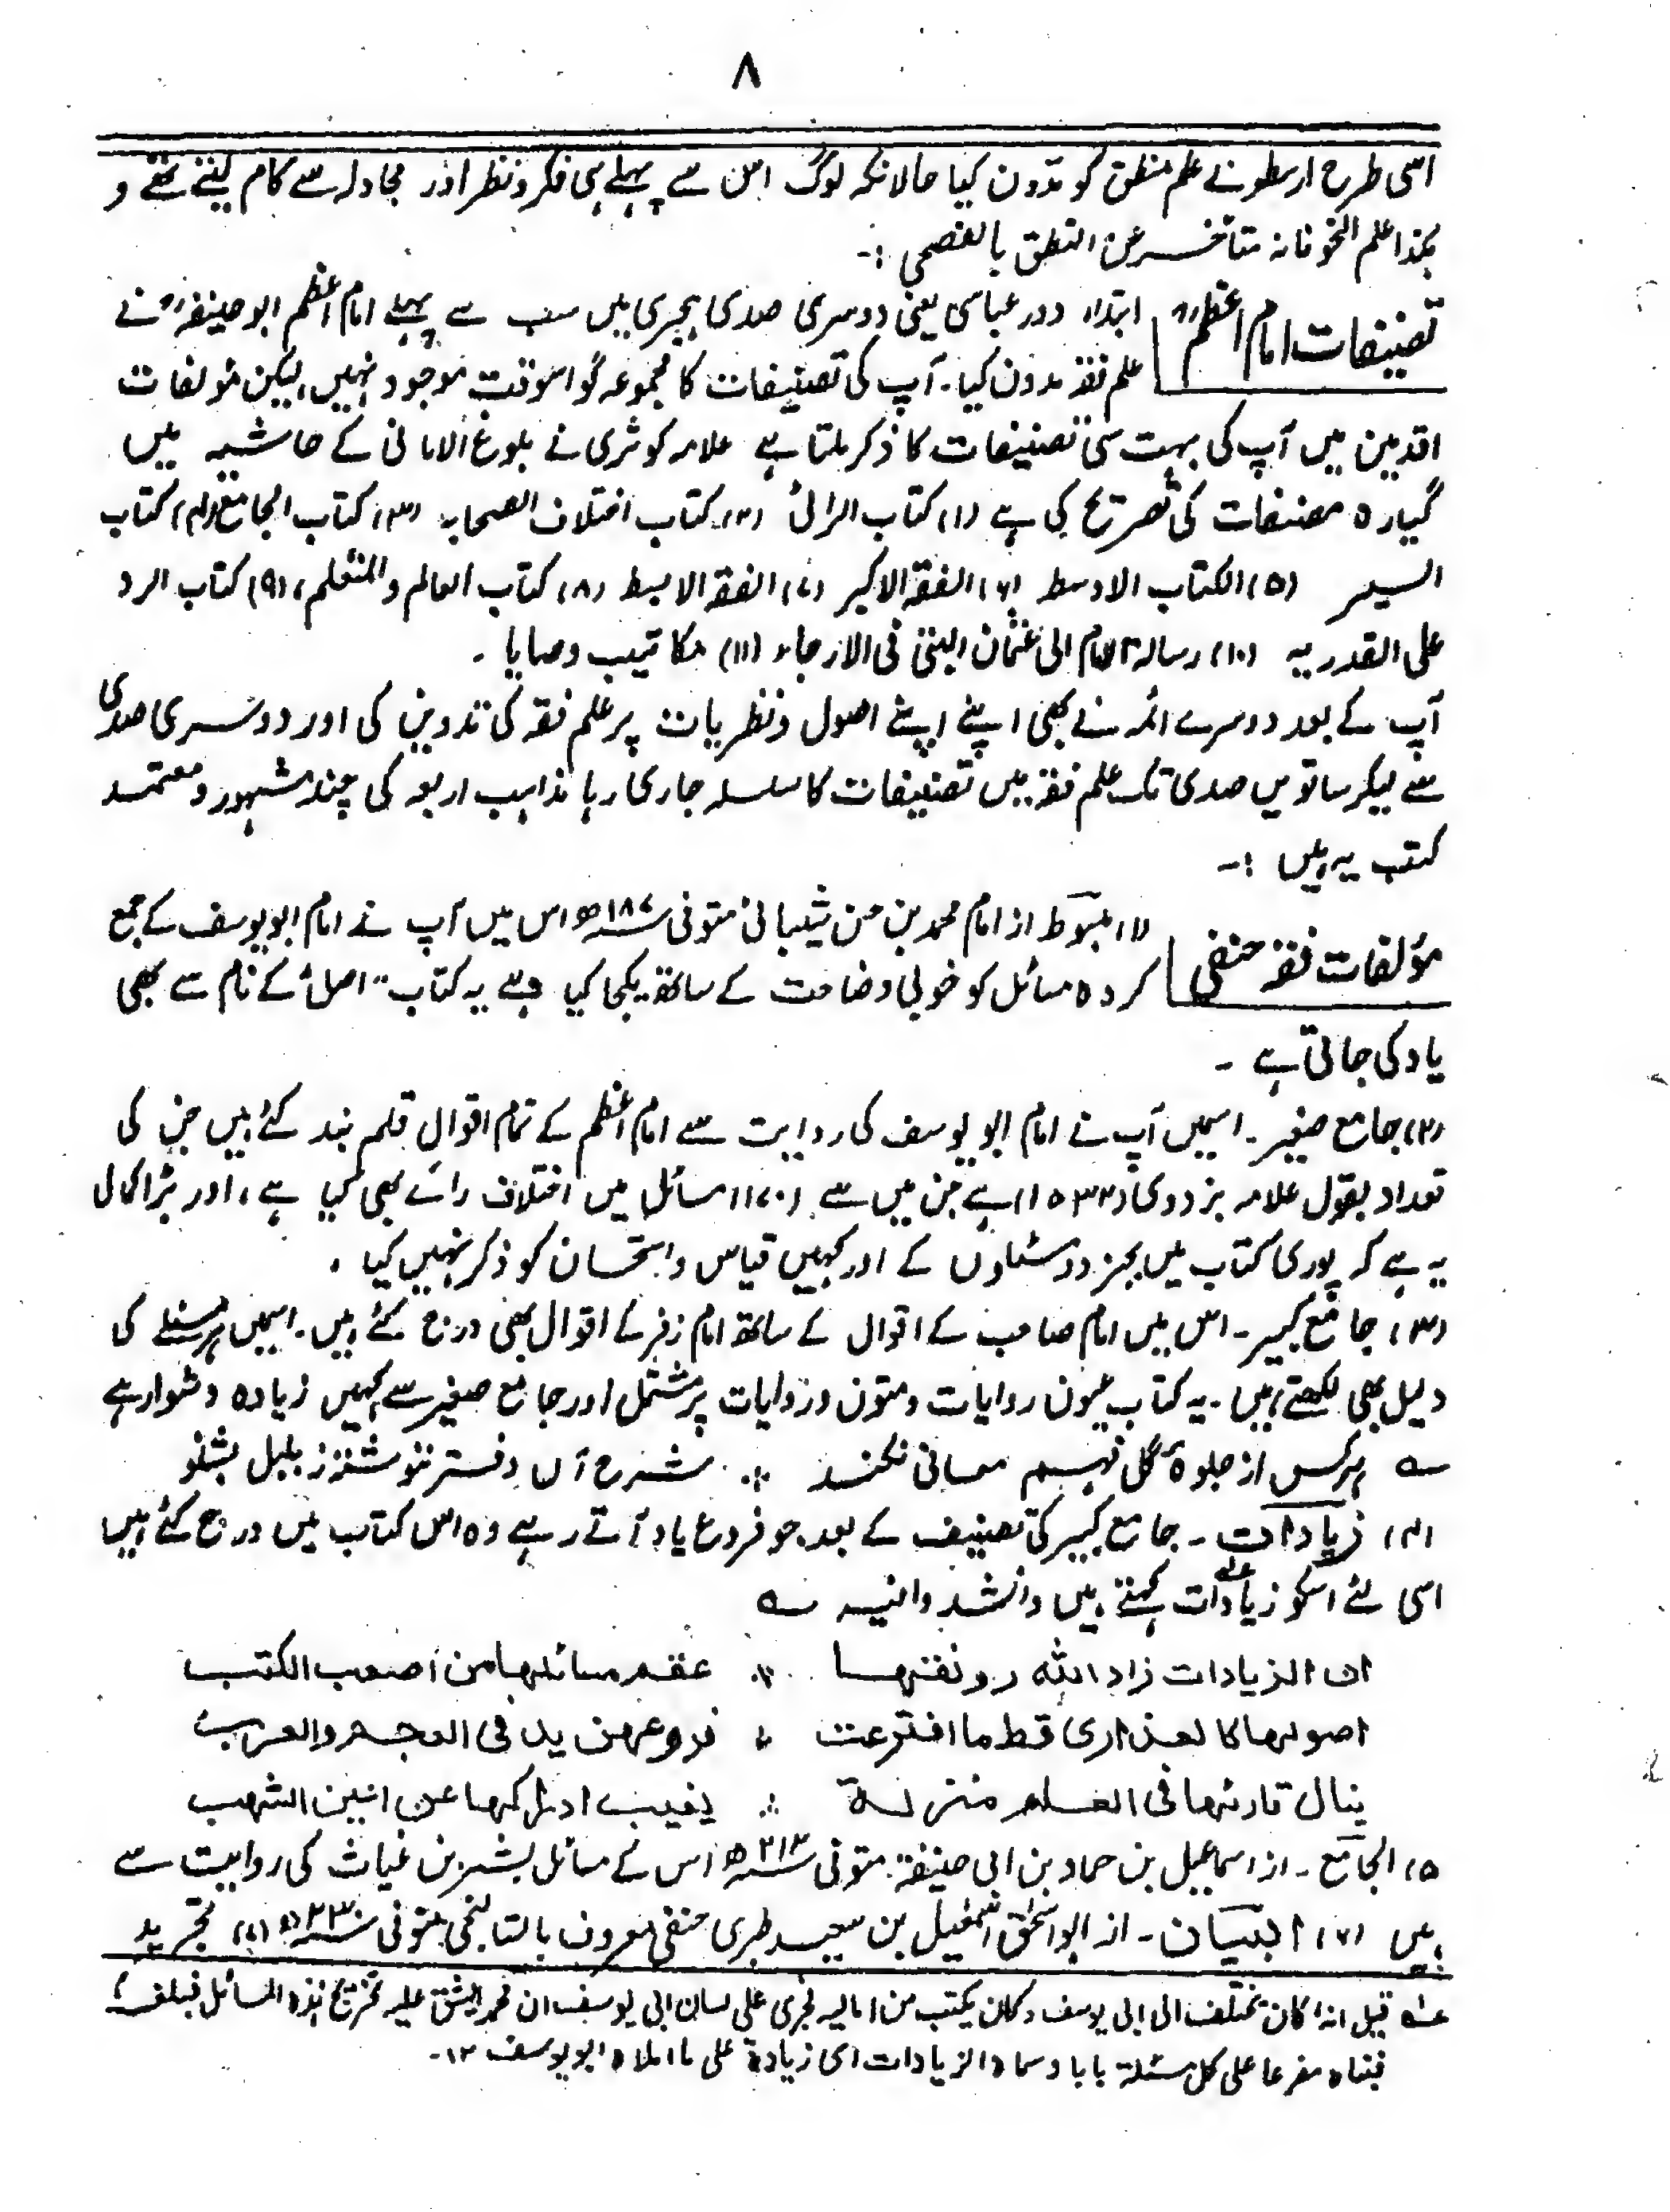 ۸
اسی طرح ارسطو نے علم منطق کو مدون کیا حالانکہ لوگ اس سے پہلے ہی فکر و نظر اور مجادلہ سے کام لیتے تھے و
ہکذا علم النحو فانہ متأخر عن النطق بالفصحی :-
تصنیفات امام اعظمؒ
ابتداء دور عباسی یعنی دوسری صدی ہجری میں سب سے پہلے امام اعظم ابو حنیفہؒ نے
علم فقہ مدون کیا۔ آپ کی تصنیفات کا مجموعہ گو اسوقت موجود نہیں، لیکن مؤلفات
اقدمین میں آپ کی بہت سی تصنیفات کا ذکر ملتا ہے علامہ کوثری نے بلوغ الامانی کے حاشیہ میں
گیارہ مصنفات کی تصریح کی ہے (۱) کتاب الرائ (۲) کتاب اختلاف الصحابہ (۳) کتاب الجامع (۴) کتاب
السیر (۵) الکتاب الاوسط (۶) الفقہ الاکبر (۷) الفقہ الابسط (۸) کتاب العالم والمتعلم، (۹) کتاب الرد
علی القدریہ (۱۰) رسالۃ الامام الی عثمان البتی فی الارجاء (۱۱) مکاتیب وصایا۔
آپ کے بعد دوسرے ائمہ نے بھی اپنے اپنے اصول و نظریات پر علم فقہ کی تدوین کی اور دوسری صدی
سے لیکر ساتویں صدی تک علم فقہ میں تصنیفات کا سلسلہ جاری رہا مذاہب اربعہ کی چند مشہور و معتمد
کتب یہ ہیں :-
مؤلفات فقہ حنفی
(۱) مبسوط از امام محمد بن حسن شیبانی متوفی ۱۸۷ھ اس میں آپ نے امام ابو یوسف کے جمع
کردہ مسائل کو خوبی وضاحت کے ساتھ یکجا کیا ہے یہ کتاب "اصل" کے نام سے بھی
یاد کی جاتی ہے ۔
(۲) جامع صغیر۔ اسمیں آپ نے امام ابو یوسف کی روایت سے امام اعظم کے تمام اقوال قلم بند کئے ہیں جن کی
تعداد بقول علامہ بزدوی (۱۵۳۲) ہے جن میں سے (۱۷۰) مسائل میں اختلاف رائے بھی کیا ہے، اور بڑا کمال
یہ ہے کہ پوری کتاب میں بجز دو مسئلوں کے اور کہیں قیاس و استحسان کو ذکر نہیں کیا ۔
(۳) جامع کبیر۔ اس میں امام صاحب کے اقوال کے ساتھ امام زفر کے اقوال بھی درج کئے ہیں۔ اسمیں ہر مسئلے کی
دلیل بھی لکھتے ہیں۔ یہ کتاب عیون روایات و متون و روایات پر مشتمل اور جامع صغیر سے کہیں زیادہ دشوار ہے
ہرکس از جلوۂ گل فہم معانی نکند ∴ شرح آں دفتر ننوشتہ ز بلبل بشنو
(۴) زیادات ۔ جامع کبیر کی تصنیف کے بعد جو فروع یاد آتے رہے وہ اس کتاب میں درج کئے ہیں
اسی لئے اسکو زیادات عہ کہتے ہیں وانشد وافیہ
ان الزیادات زاد اللہ رونقہا ∴ عقم مسائلہا من اصعب الکتب
اصولہا کالعذاری قط ما افترعت ∴ فروعہن ید فی العجم والعرب
ینال قارئہا فی العلم منزلۃ ∴ یغیب ادراکہا عن اعین الشہب
(۵) الجامع ۔ از اسماعیل بن حماد بن ابی حنیفۃ متوفی ۲۱۲ھ اس کے مسائل بشر بن غیاث کی روایت سے
ہیں (۶) البیان ۔ از ابو اسحٰق اسمٰعیل بن سعید طبری حنفی معروف بالشالنجی متوفی ۲۳۰ھ (۷) تجرید
عہ قیل انہ کان یختلف الی ابی یوسف وکان یکتب من امالیہ فجری علی لسان ابی یوسف ان محمدا یشق علیہ تخریج ہذہ المسائل فبلغہ
فبناہ مفرعا علی کل مسئلۃ بابا وسماہ الزیادات ای زیادۃ علی ما املاہ ابو یوسف ۱۲۔